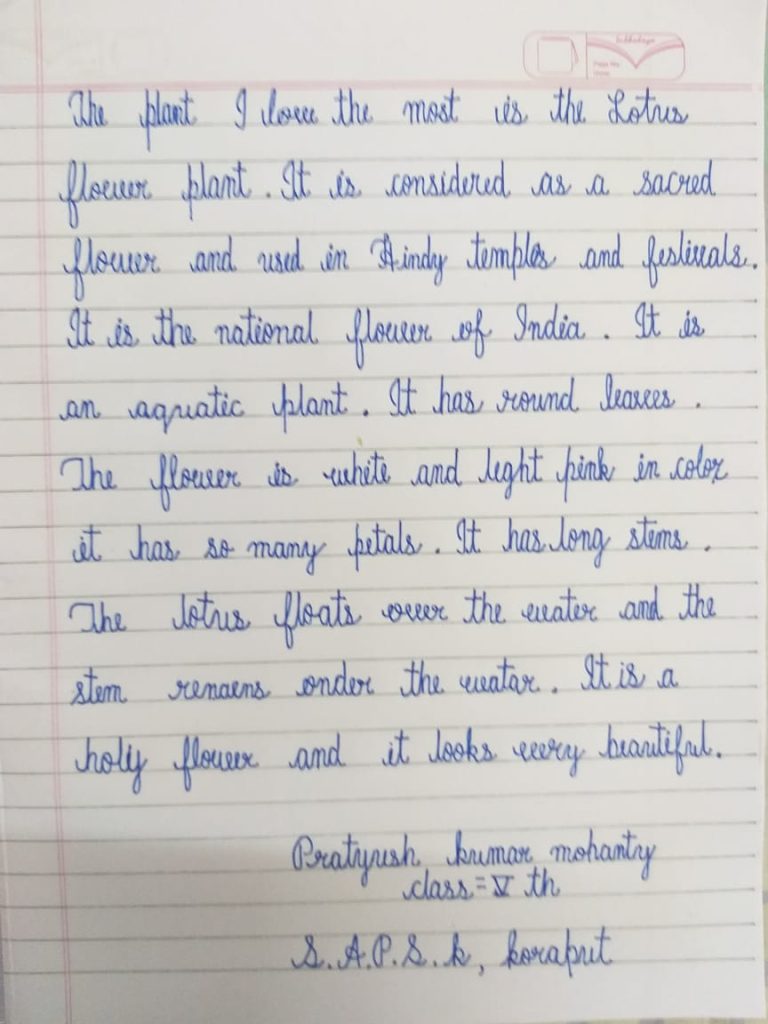 The plant I love the most is the Lotus
flower plant. It is considered as a sacred
flower and used in Hindy temples and festivals.
It is the national flower of India. It is
an aquatic plant. It has round leaves.
The flower is white and light pink in color
it has so many petals. It has long stems.
The lotus floats over the water and the
stem remaens onder the watar. It is a
holy flower and it looks very beautiful.
Pratyush kumar mohanty
class = V th
S.A.P.S.k, koraput